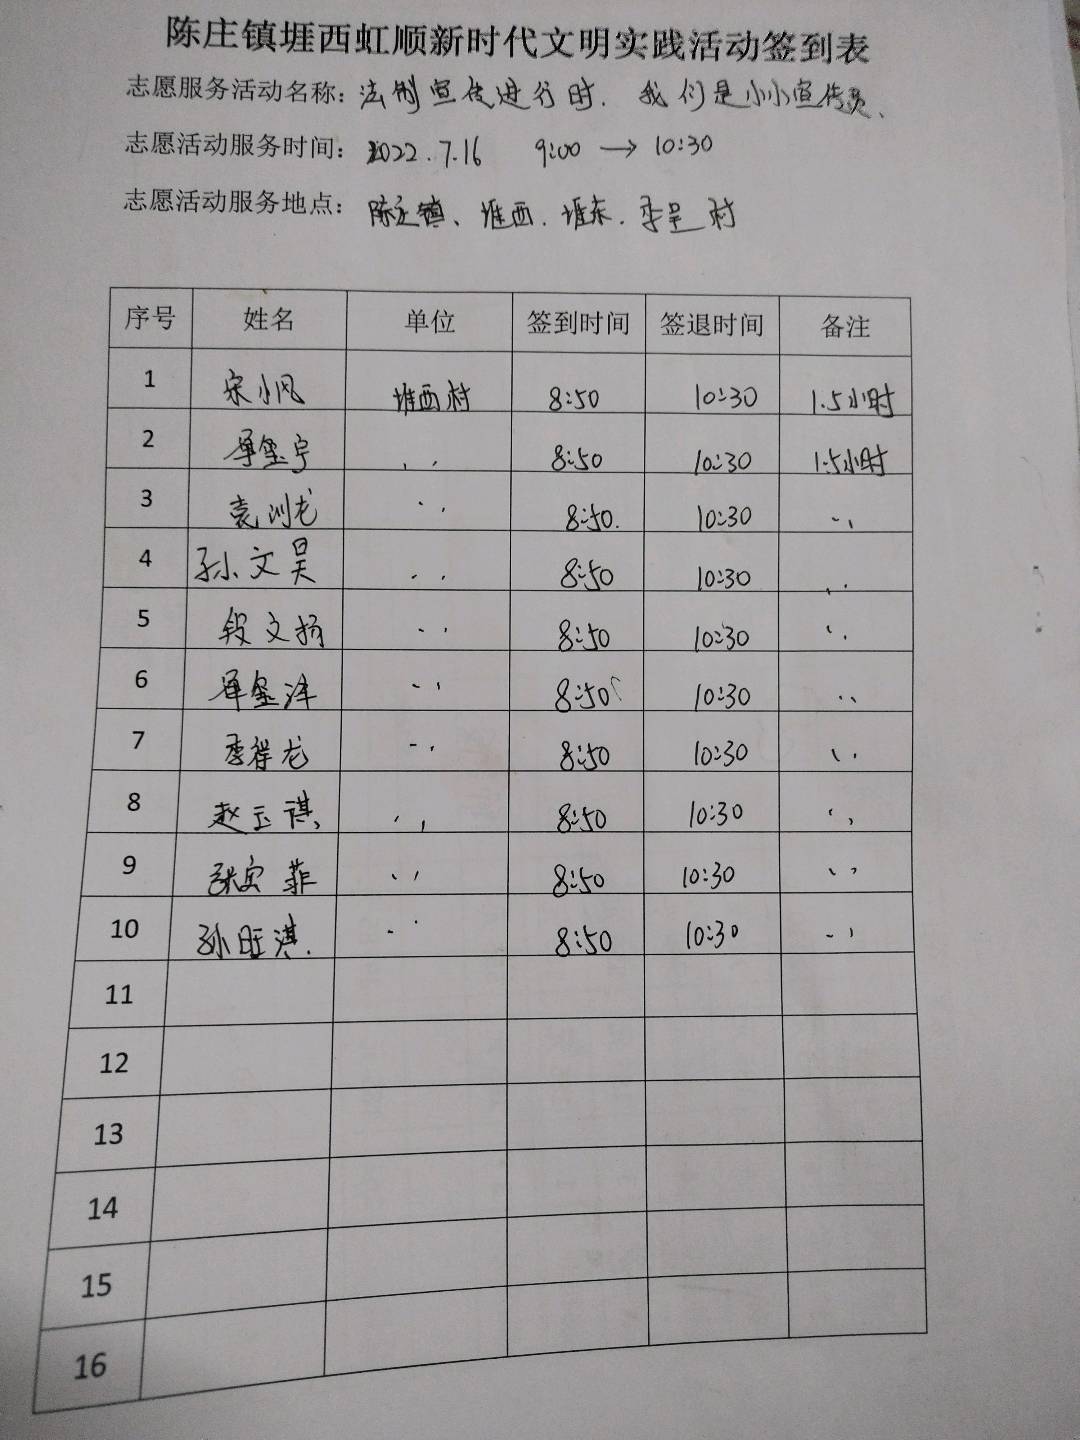 陈庄镇堐西虹顺新时代文明实践活动签到表
志愿服务活动名称：法制宣传进行时. 我们是小小宣传员、
志愿活动服务时间：2022.7.16 9:00 → 10:30
志愿活动服务地点：陈庄镇、堐西. 堐东. 李呈村
序号 姓名 单位 签到时间 签退时间 备注
1 宋小风 堐西村 8:50 10:30 1.5小时
2 单玺宁 〃 8:50 10:30 1.5小时
3 袁训龙 〃 8:50. 10:30 〃
4 孙文昊 〃 8:50 10:30 〃
5 段文扬 〃 8:50 10:30 〃
6 单玺泽 〃 8:50 10:30 〃
7 李祥龙 〃 8:50 10:30 〃
8 赵玉祺 〃 8:50 10:30 〃
9 张宾菲 〃 8:50 10:30 〃
10 孙旺淇. 〃 8:50 10:30 〃
11
12
13
14
15
16